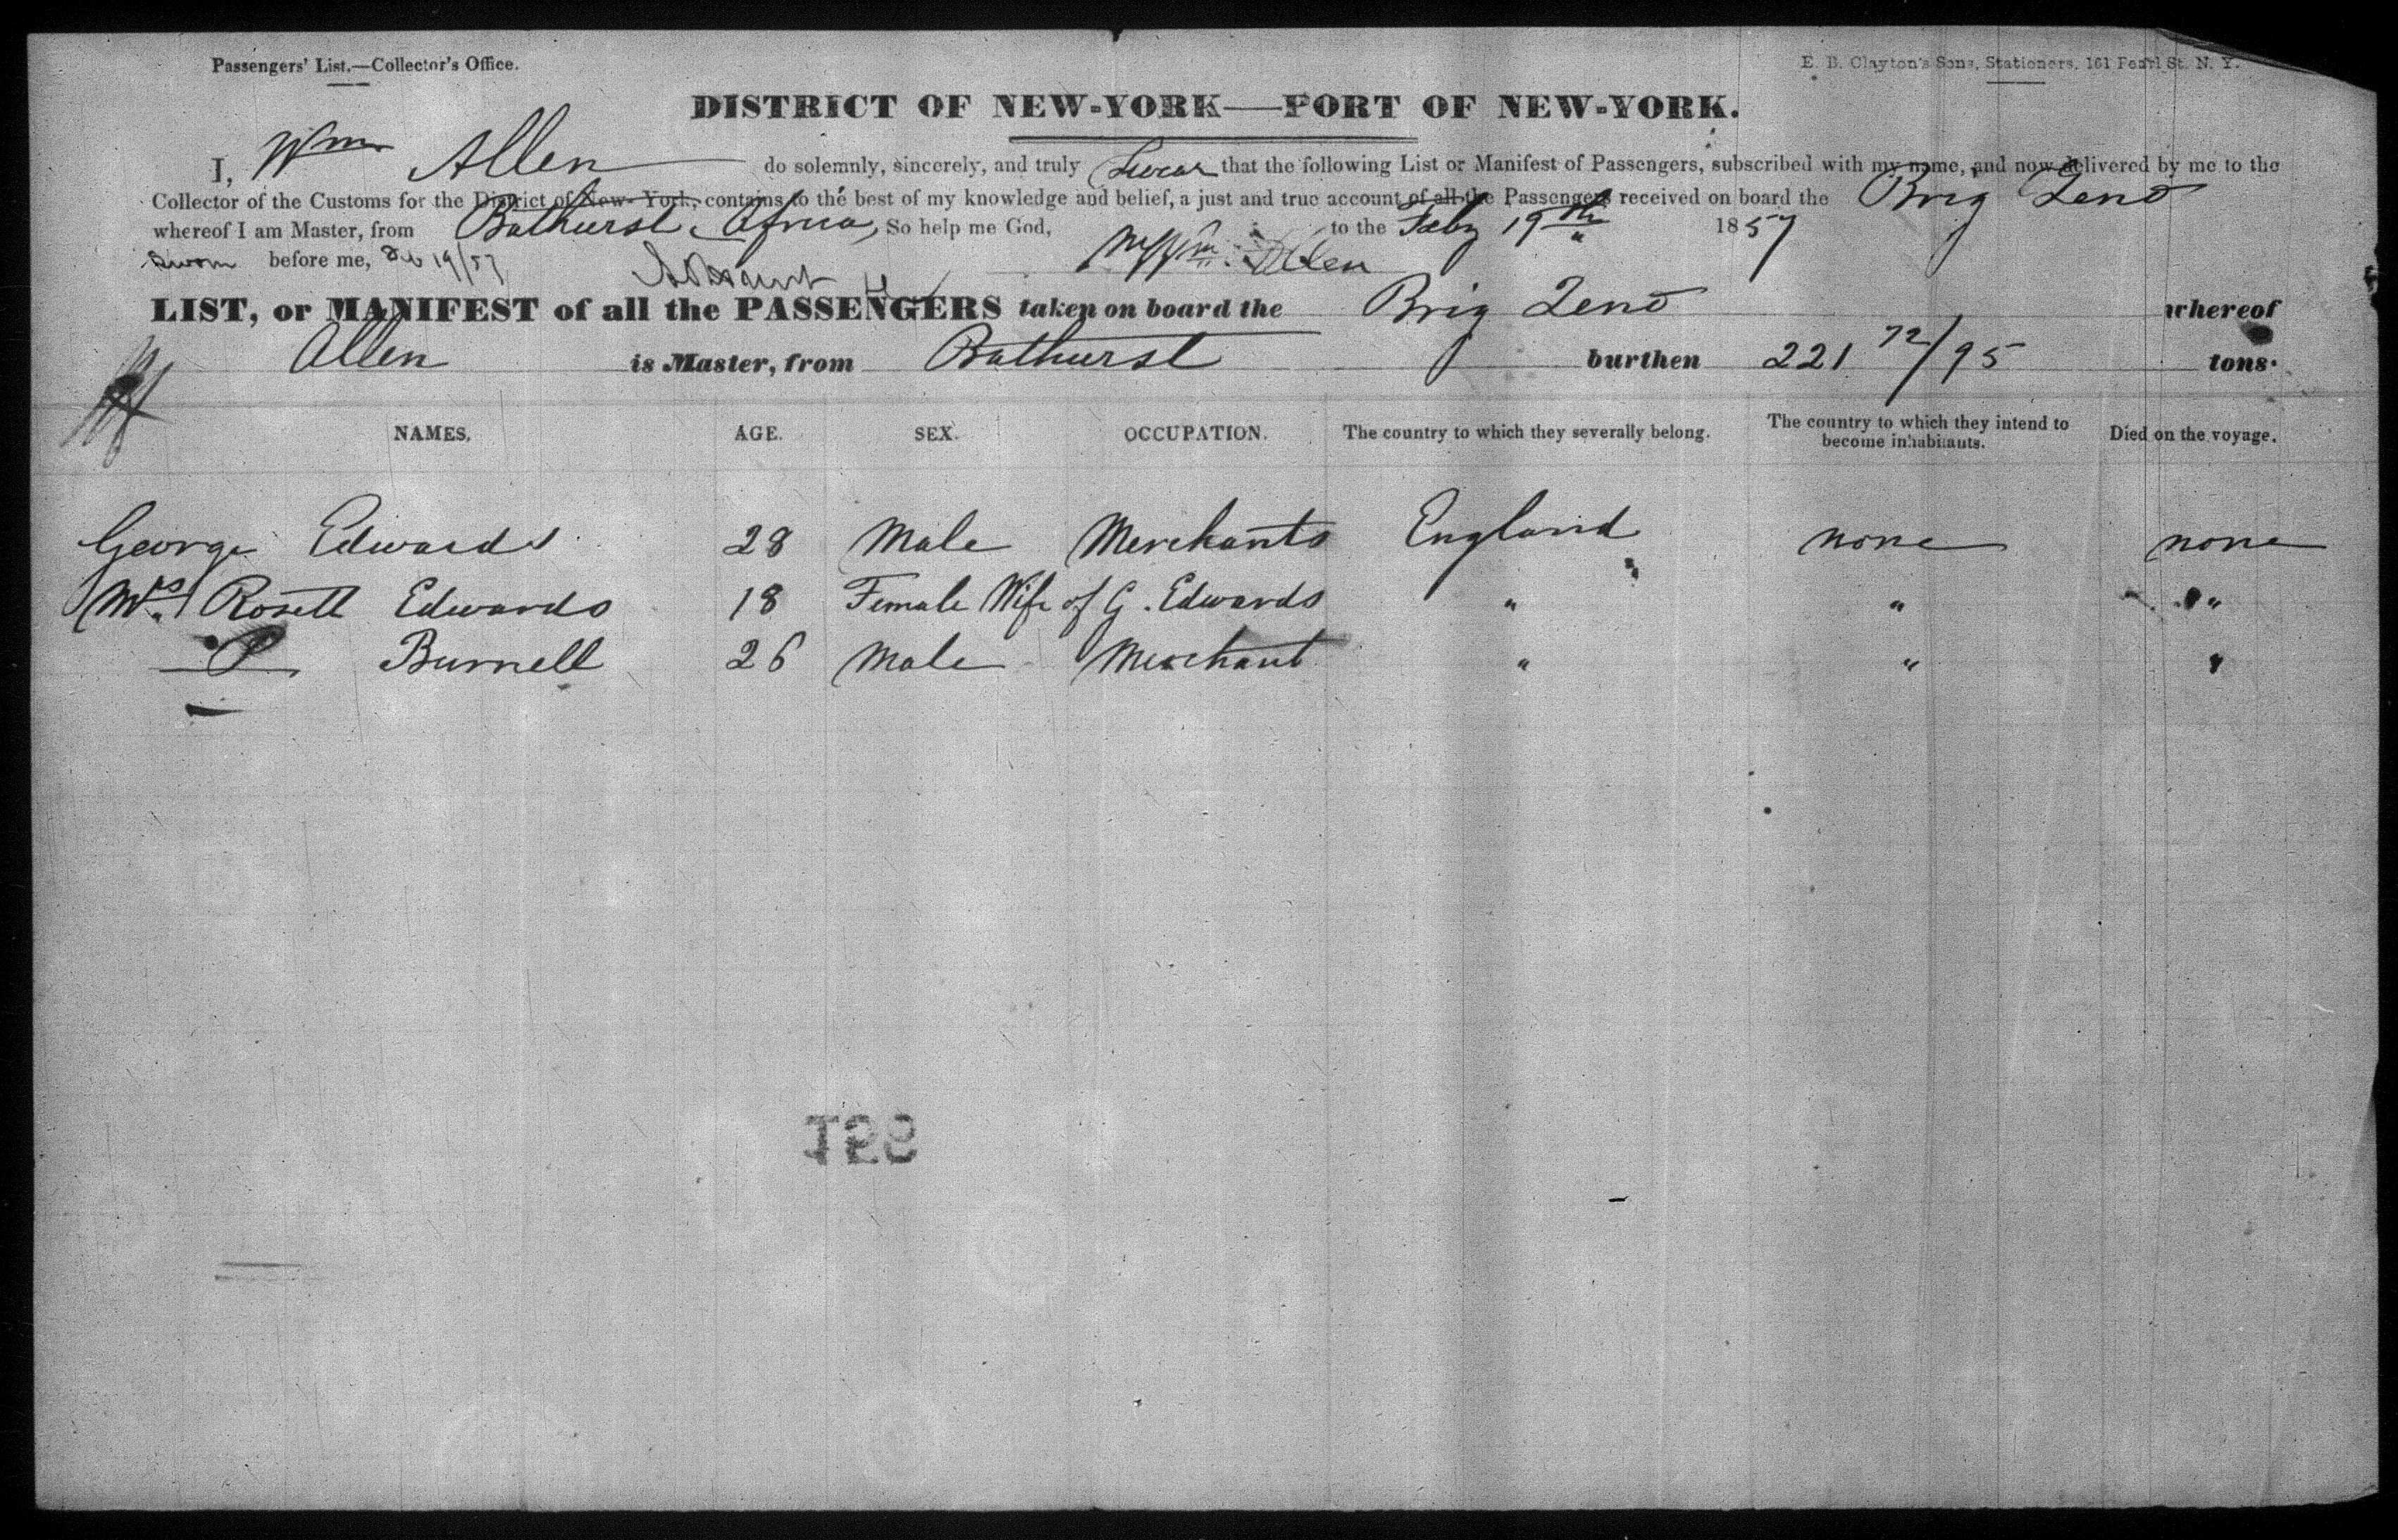 Passengers' List.—Collector's Office.
E. B. Clayton's Sons, Stationers, 161 Pearl St. N. Y.
DISTRICT OF NEW-YORK—PORT OF NEW-YORK.
I, Wm Allen do solemnly, sincerely, and truly Swear that the following List or Manifest of Passengers, subscribed with my name, and now delivered by me to the
Collector of the Customs for the District of New-York, contains to the best of my knowledge and belief, a just and true account of all the Passengers received on board the Brig Zeno
whereof I am Master, from Bathurst, Africa, So help me God, to the Feby 19th 1857
Sworn before me, Feb 19/57 Wm Allen
LIST, or MANIFEST of all the PASSENGERS taken on board the Brig Zeno whereof
Allen is Master, from Bathurst burthen 221 72/95 tons.
NAMES. AGE. SEX. OCCUPATION. The country to which they severally belong. The country to which they intend to become inhabitants. Died on the voyage.
George Edwards 28 Male Merchants England none none
Mrs Rosett Edwards 18 Female Wife of G. Edwards " " "
P Burnell 26 Male Merchant " " "